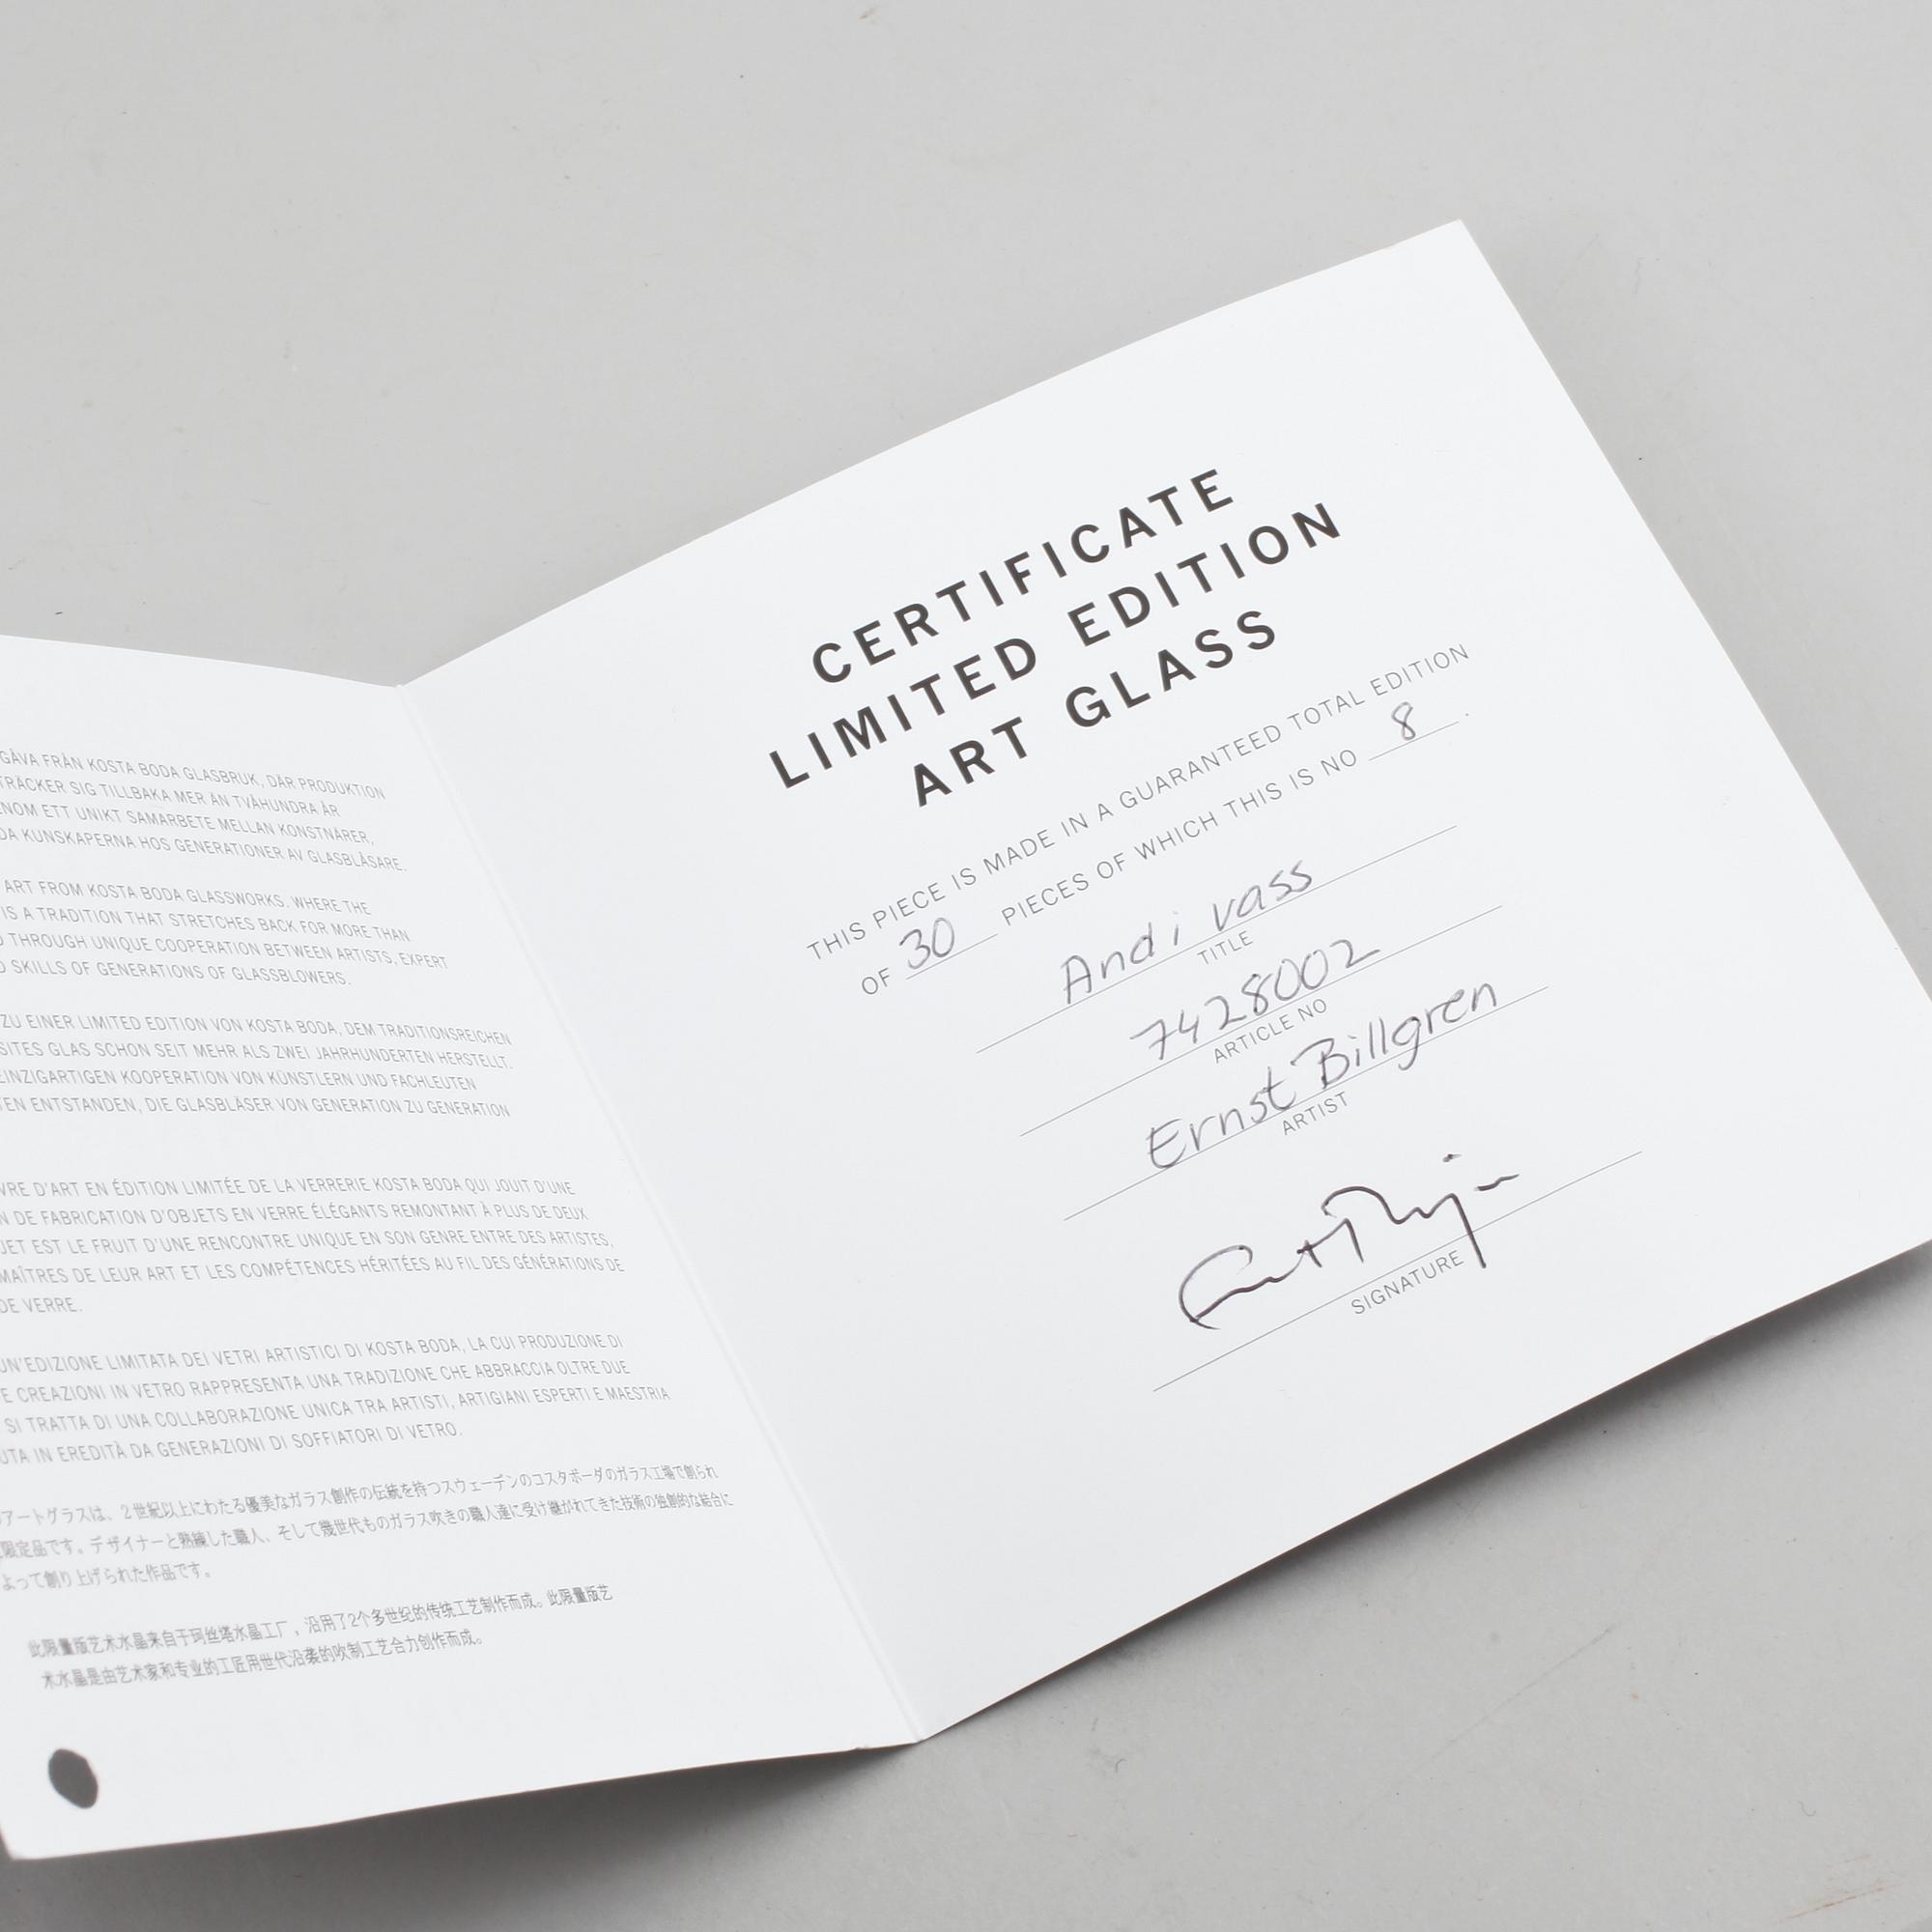 GÅVA FRÅN KOSTA BODA GLASBRUK, DÄR PRODUKTION
TRÄCKER SIG TILLBAKA MER ÄN TVÅHUNDRA ÅR
NOM ETT UNIKT SAMARBETE MELLAN KONSTNÄRER,
DA KUNSKAPERNA HOS GENERATIONER AV GLASBLÅSARE.
ART FROM KOSTA BODA GLASSWORKS. WHERE THE
IS A TRADITION THAT STRETCHES BACK FOR MORE THAN
THROUGH UNIQUE COOPERATION BETWEEN ARTISTS, EXPERT
SKILLS OF GENERATIONS OF GLASSBLOWERS.
ZU EINER LIMITED EDITION VON KOSTA BODA, DEM TRADITIONSREICHEN
SITES GLAS SCHON SEIT MEHR ALS ZWEI JAHRHUNDERTEN HERSTELLT.
EINZIGARTIGEN KOOPERATION VON KÜNSTLERN UND FACHLEUTEN
TEN ENTSTANDEN, DIE GLASBLÄSER VON GENERATION ZU GENERATION
VRE D'ART EN ÉDITION LIMITÉE DE LA VERRERIE KOSTA BODA QUI JOUIT D'UNE
N DE FABRICATION D'OBJETS EN VERRE ÉLÉGANTS REMONTANT À PLUS DE DEUX
JET EST LE FRUIT D'UNE RENCONTRE UNIQUE EN SON GENRE ENTRE DES ARTISTES,
MAÎTRES DE LEUR ART ET LES COMPÉTENCES HÉRITÉES AU FIL DES GÉNÉRATIONS DE
DE VERRE.
UN'EDIZIONE LIMITATA DEI VETRI ARTISTICI DI KOSTA BODA, LA CUI PRODUZIONE DI
E CREAZIONI IN VETRO RAPPRESENTA UNA TRADIZIONE CHE ABBRACCIA OLTRE DUE
SI TRATTA DI UNA COLLABORAZIONE UNICA TRA ARTISTI, ARTIGIANI ESPERTI E MAESTRIA
UTA IN EREDITÀ DA GENERAZIONI DI SOFFIATORI DI VETRO.
アートグラスは、2世紀以上にわたる優美なガラス創作の伝統を持つスウェーデンのコスタボーダのガラス工場で創られ
限定品です。デザイナーと熟練した職人、そして幾世代ものガラス吹きの職人達に受け継がれてきた技術の独創的な結合に
よって創り上げられた作品です。
此限量版艺术水晶来自于珂丝塔水晶工厂，沿用了2个多世纪的传统工艺制作而成。此限量版艺
术水晶是由艺术家和专业的工匠用世代沿袭的吹制工艺合力创作而成。
CERTIFICATE
LIMITED EDITION
ART GLASS
THIS PIECE IS MADE IN A GUARANTEED TOTAL EDITION
OF 30 PIECES OF WHICH THIS IS NO 8.
Andi vass
TITLE
7428002
ARTICLE NO
Ernst Billgren
ARTIST
SIGNATURE